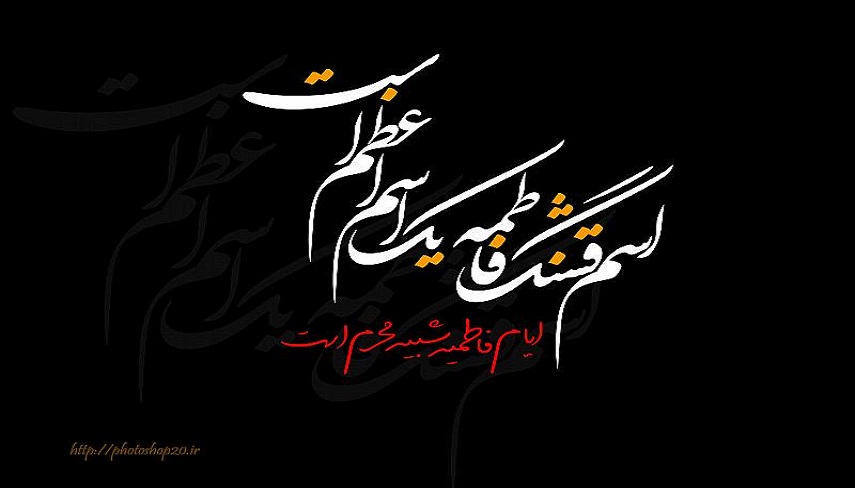 اسم قشنگ فاطمه یک اسم اعظم است
ایام فاطمیه شبیه محرم است
http://photoshop20.ir